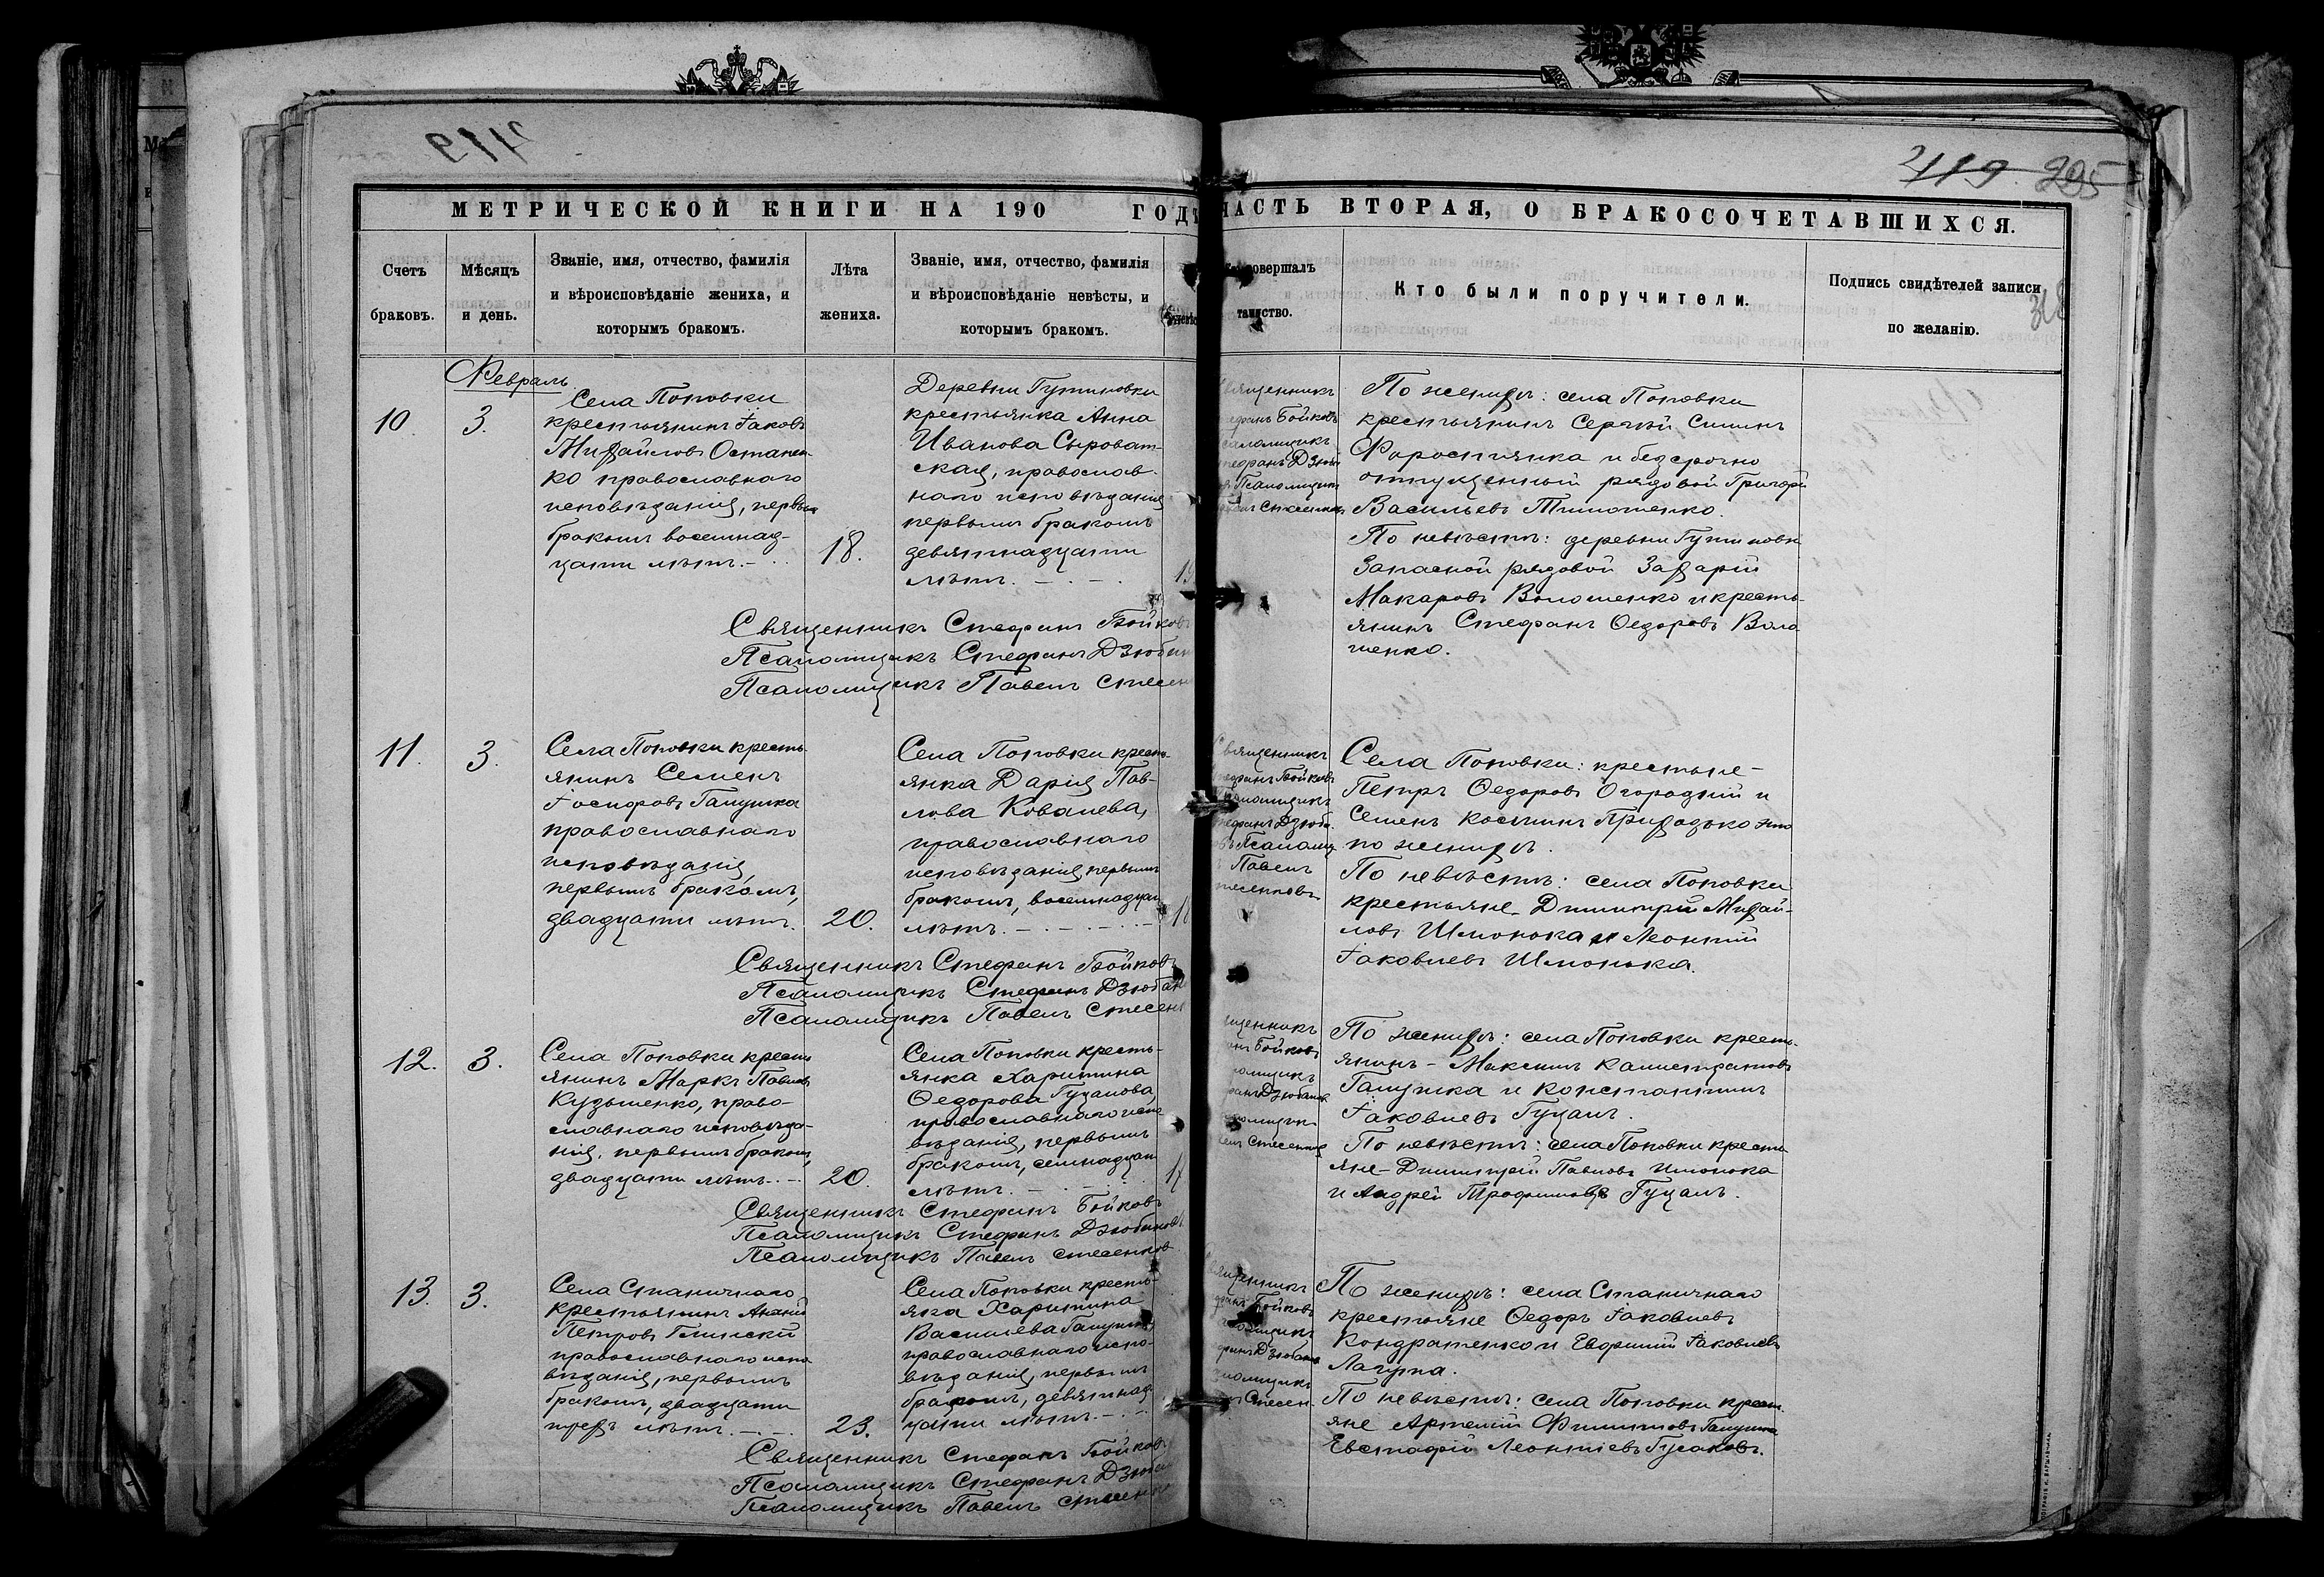 419
419. 295
318
МЕТРИЧЕСКОЙ КНИГИ НА 190 ГОДЪ
ЧАСТЬ ВТОРАЯ, О БРАКОСОЧЕТАВШИХСЯ.
Счетъ браковъ.
Мѣсяцъ и день.
Званіе, имя, отчество, фамилія
и вѣроисповѣданіе жениха, и
которымъ бракомъ.
Лѣта
жениха.
Званіе, имя, отчество, фамилія
и вѣроисповѣданіе невѣсты, и
которымъ бракомъ.
совершалъ
таинство.
Кто были поручители.
Подпись свидѣтелей записи
по желанію.
Февраль
10. 3.
Села Поповки
крестьянинъ Іаковъ
Михайловъ Останен-
ко православнаго
исповѣданія, первымъ
бракомъ восемнад-
цати лѣтъ.
18.
Деревни Гутниковки
крестьянка Анна
Иванова Сыроват-
ская, православ-
наго исповѣданія
первымъ бракомъ
девятнадцати
лѣтъ.
Священникъ
Бойковъ
Псаломщикъ
По женихѣ: села Поповки
крестьянинъ Сергій
и безсрочно
отпускной рядовой Григорій
Васильевъ Тимошенко.
По невѣстѣ: деревни
Запасной рядовой Захарій
Макаровъ Волошенко и кресть-
янинъ Стефанъ Ѳедоровъ Воло
шенко.
Священникъ Стефанъ Бойковъ
Псаломщикъ Стефанъ
Псаломщикъ Павелъ
11. 3.
Села Поповки кресть-
янинъ Семенъ
Іосифовъ Галушка
православнаго
исповѣданія,
первымъ бракомъ,
двадцати лѣтъ.
20.
Села Поповки кресть-
янка Дарія Пав-
лова Ковалева,
православнаго
исповѣданія, первымъ
бракомъ, восемнадцати
лѣтъ.
18
Священникъ
Бойковъ
Павелъ
Села Поповки: крестьяне-
Петръ Ѳедоровъ Огородній и
Семенъ Косминъ Приходько
по женихѣ.
По невѣстѣ: села Поповки
крестьяне Димитрій Михай-
ловъ Шмонька и Леонтій
Іаковлевъ Шмонька.
Священникъ Стефанъ Бойковъ
Псаломщикъ Стефанъ
Псаломщикъ Павелъ
12. 3.
Села Поповки кресть
янинъ Маркъ Павловъ
Кузьменко, право-
славнаго исповѣда-
нія, первымъ бракомъ,
двадцати лѣтъ.
20.
Села Поповки кресть-
янка Харитина
Ѳедорова Гуцалова,
православнаго испо
вѣданія, первымъ
бракомъ, семнадцати
лѣтъ.
17
Бойковъ
По женихѣ: села Поповки кресть-
янинъ - Максимъ Калистратовъ
Галушка и Константинъ
Іаковлевъ Гуцалъ.
По невѣстѣ: села Поповки кресть
яне- Димитрій Павловъ Шмонька
и Андрей Трофимовъ Гуцалъ.
Священникъ Стефанъ Бойковъ
Псаломщикъ Стефанъ
Псаломщикъ Павелъ
13. 3.
Села Станичнаго
крестьянинъ Ананій
Петровъ Глинскій
православнаго испо
вѣданія, первымъ
бракомъ, двадцати
трехъ лѣтъ.
23.
Села Поповки кресть-
янка Харитина
Васильева
православнаго испо-
вѣданія, первымъ
бракомъ, девятнад-
цати лѣтъ.
Бойковъ
По женихѣ: села Станичнаго
крестьяне Ѳедоръ Іаковлевъ
Кондратенко и Евфимій Іаковлевъ
Лагута.
По невѣстѣ: села Поповки кресть
яне Артемій Филипповъ Галушка
Евстафій Леонтіевъ Гусаковъ.
Священникъ Стефанъ Бойковъ
Псаломщикъ Стефанъ
Псаломщикъ Павелъ